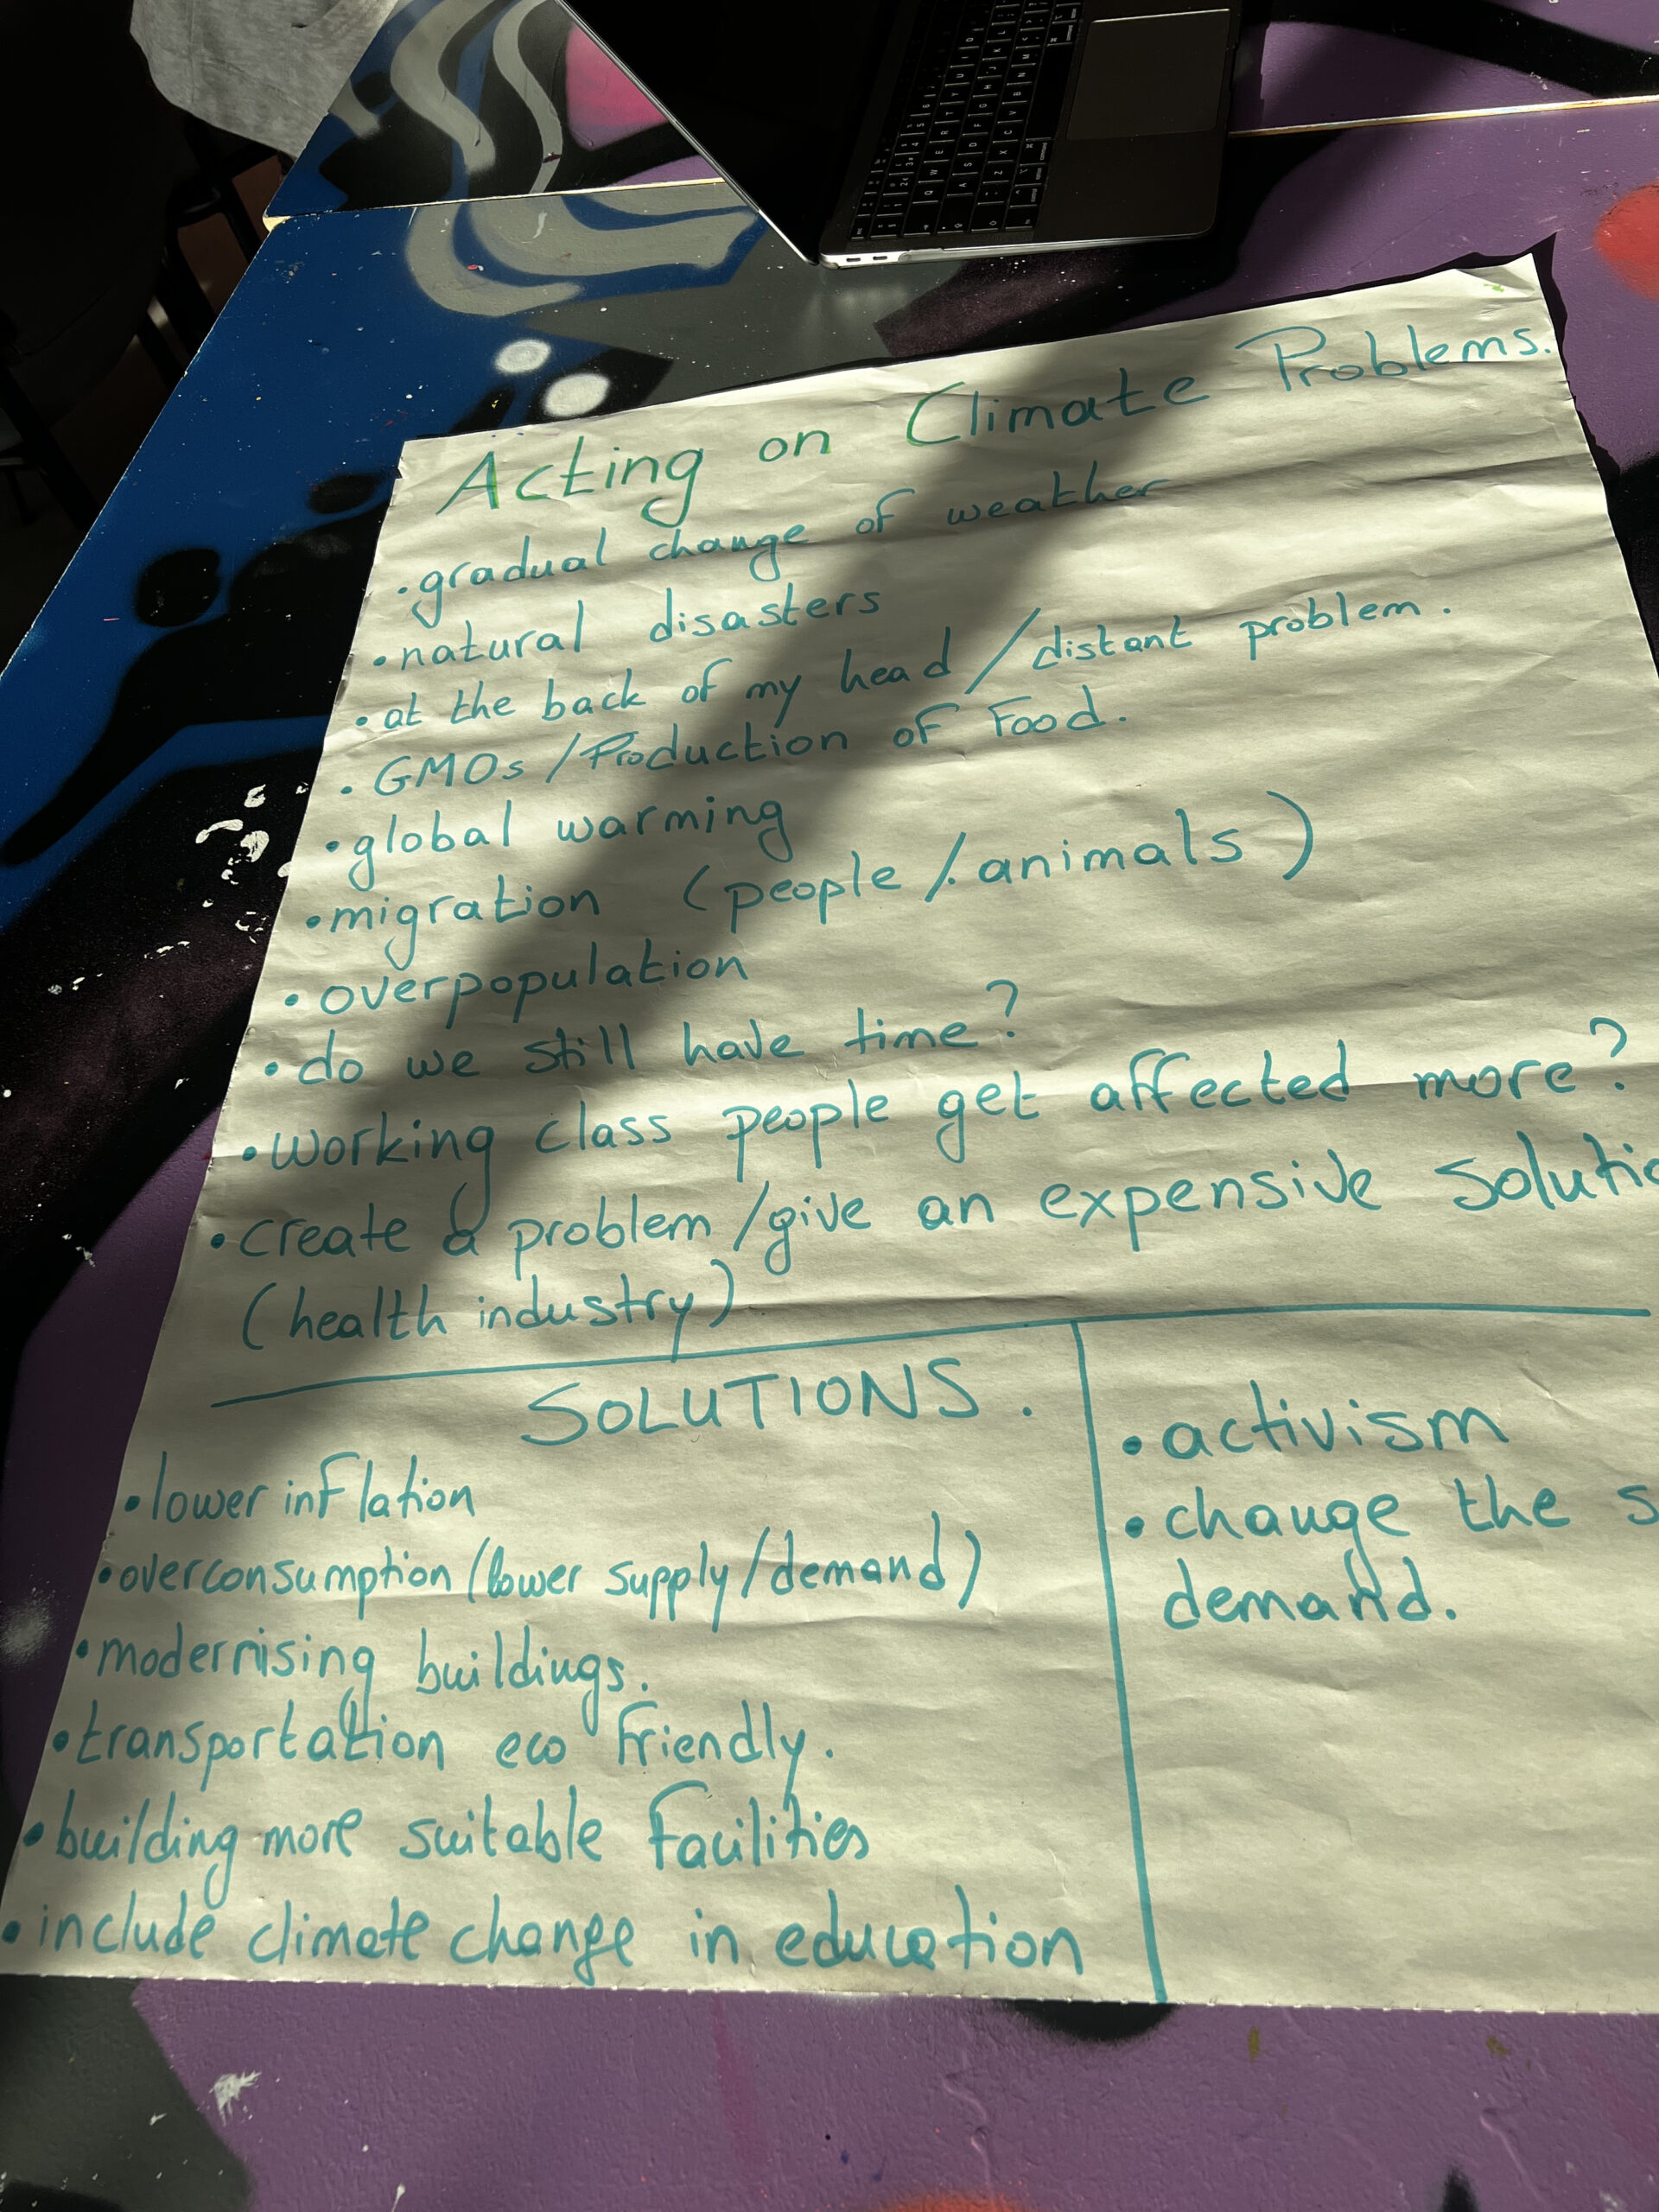 Acting on Climate Problems.
• gradual change of weather
• natural disasters
• at the back of my head / distant problem.
• GMOs / Production of Food.
• global warming
• migration (people / animals)
• overpopulation
• do we still have time?
• working class people get affected more?
• create a problem / give an expensive solutio
(health industry)
SOLUTIONS.
• lower inflation
• overconsumption (lower supply/demand)
• modernising buildings.
• transportation eco friendly.
• building more suitable facilities
• include climate change in education
• activism
• change the s
demand.